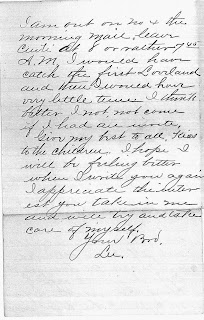 I am out on no 4 the
morning mail, leave
at 8 or rather 7 45
A.M. I would have
catch the first Loveland
and then I would have
very little time. I think
better I not not come
if I had a
Give my best to all. Kiss
to the children. I hope I
will be feeling better
when I write you again
I appreciate the inter
est you take in me
and will try and take
care of myself.
Your Bro.
Lee.